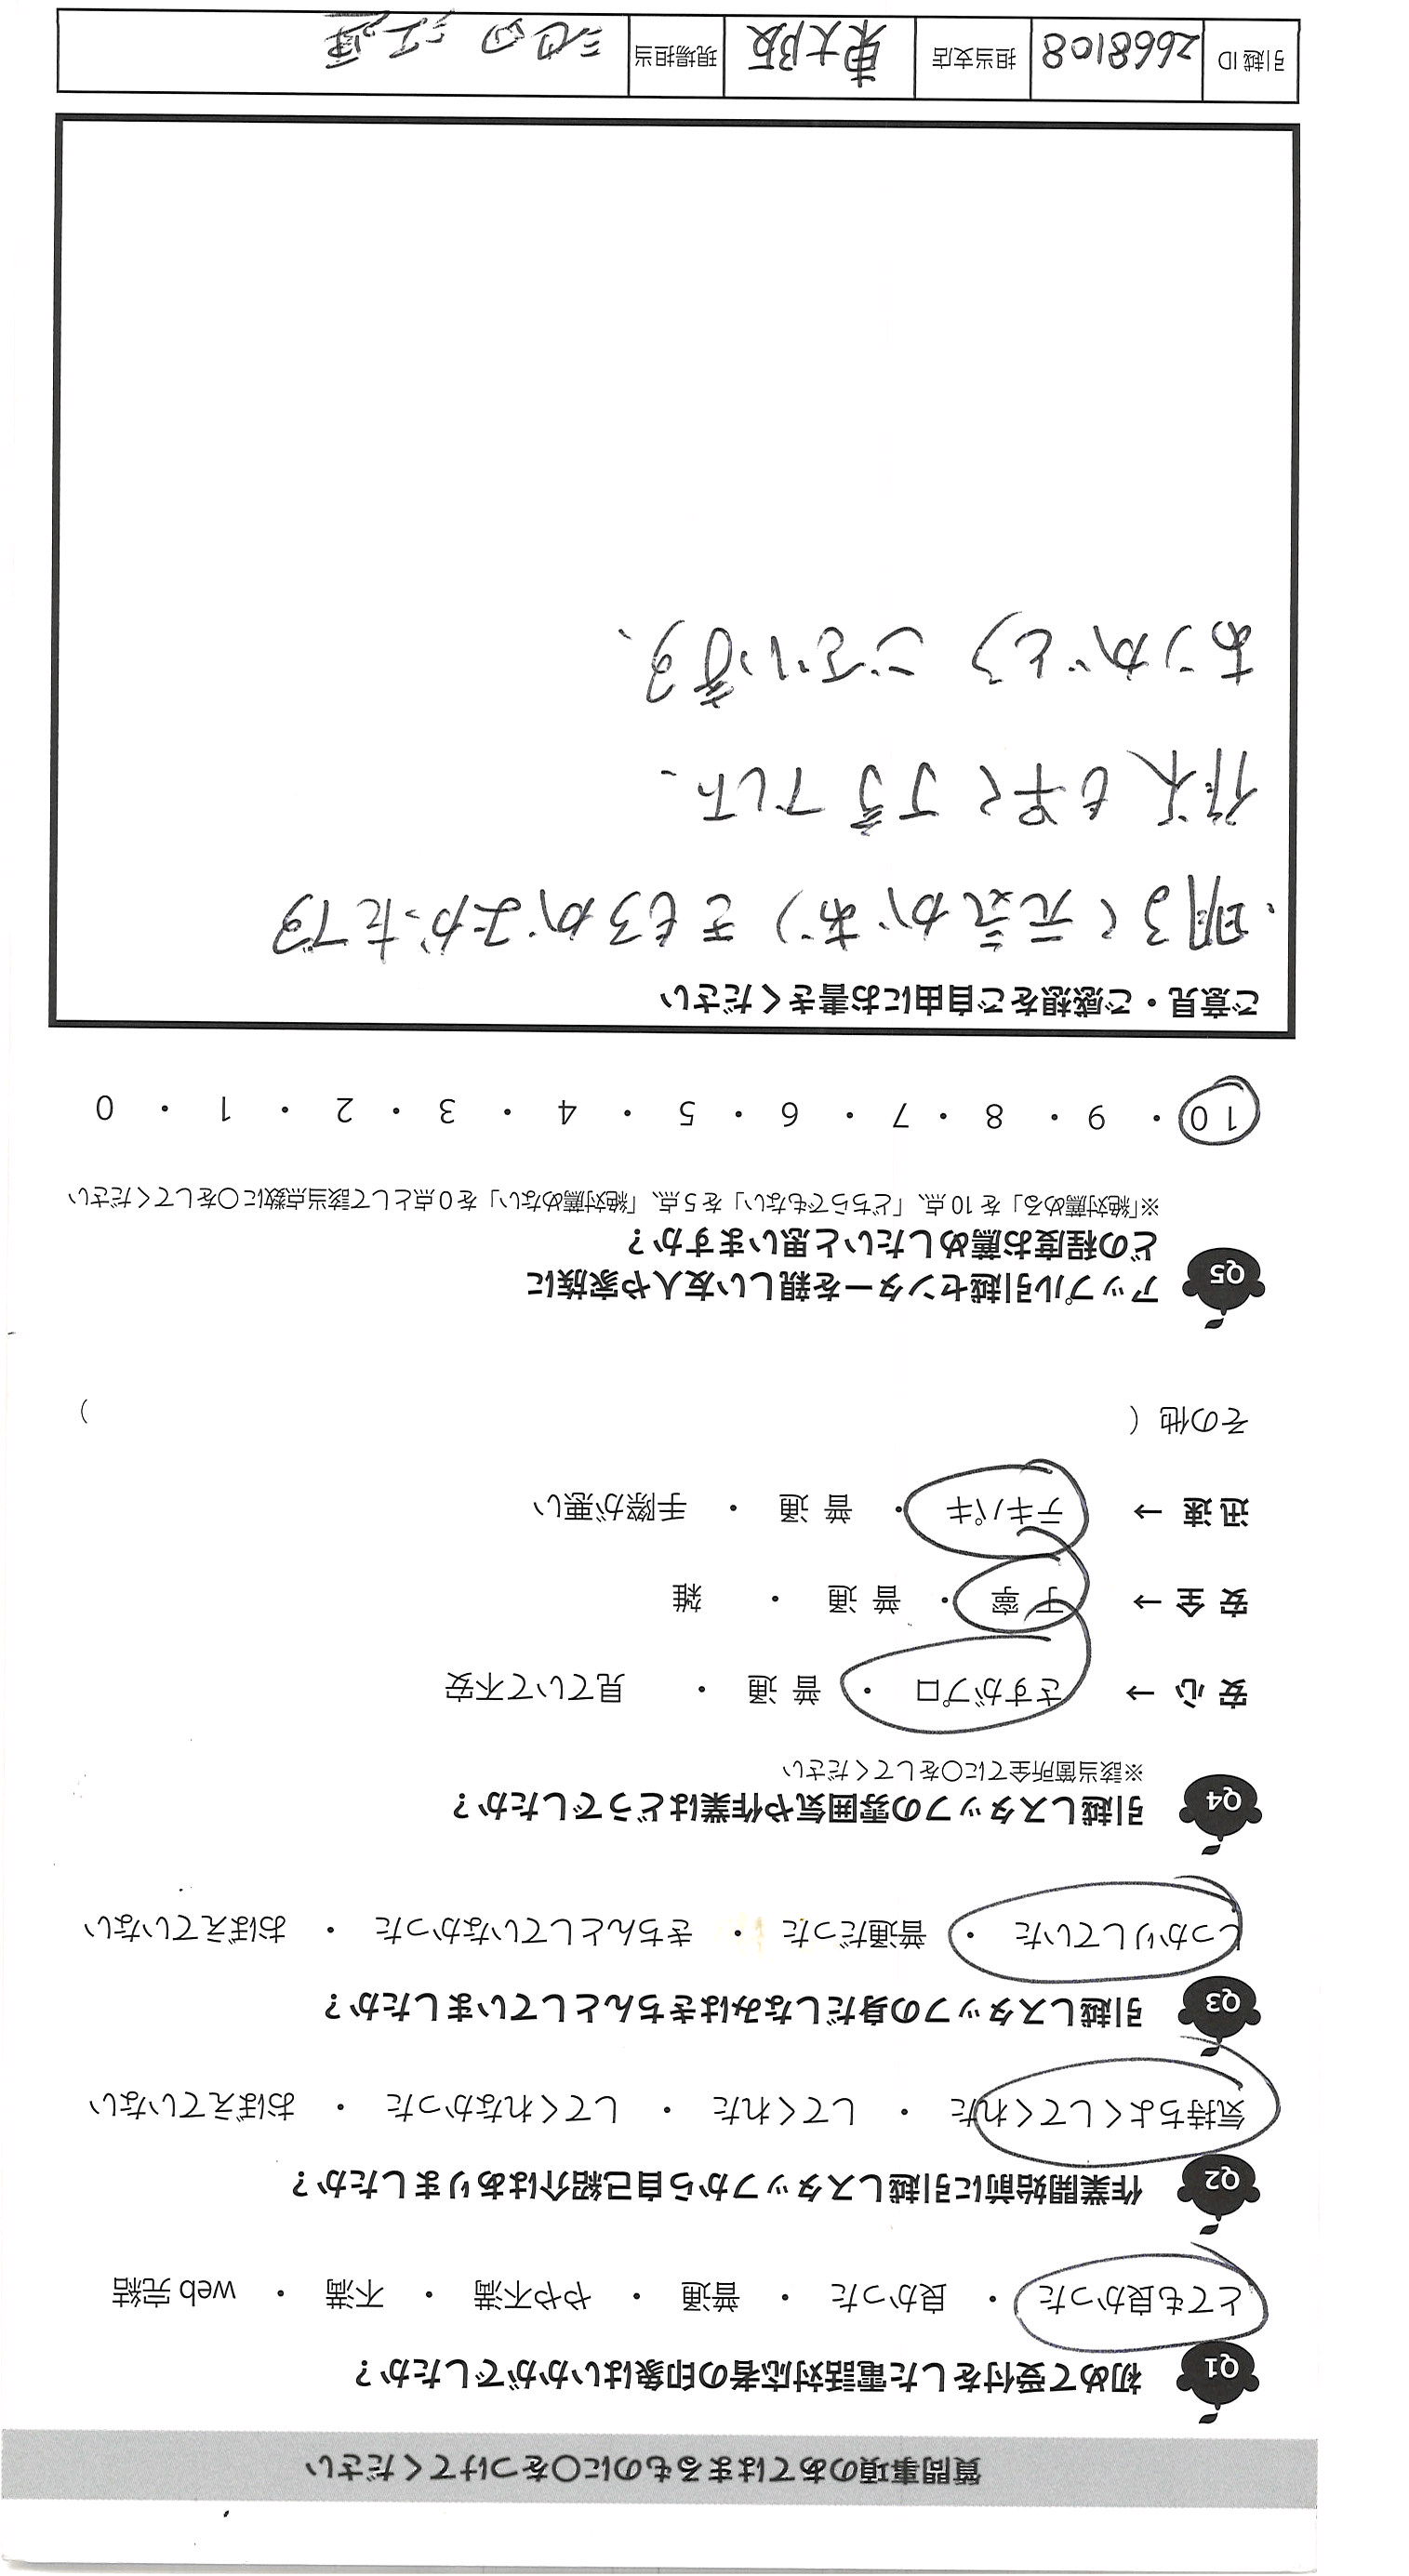 質問事項のあてはまるものに○をつけてください
Q1 初めて受付をした電話対応者の印象はいかがでしたか？
とても良かった ・ 良かった ・ 普通 ・ やや不満 ・ 不満 ・ web 完結
Q2 作業開始前に引越しスタッフから自己紹介はありましたか？
気持ちよくしてくれた ・ してくれた ・ してくれなかった ・ おぼえていない
Q3 引越しスタッフの身だしなみはきちんとしていましたか？
しっかりしていた ・ 普通だった ・ きちんとしていなかった ・ おぼえていない
Q4 引越しスタッフの雰囲気や作業はどうでしたか？
※該当箇所全てに○をしてください
安心 → さすがプロ ・ 普通 ・ 見ていて不安
安全 → 丁寧 ・ 普通 ・ 雑
迅速 → テキパキ ・ 普通 ・ 手際が悪い
その他 （ ）
Q5 アップル引越センターを親しい友人や家族に
どの程度お薦めしたいと思いますか？
※「絶対薦める」を 10 点、「どちらでもない」を 5 点、「絶対薦めない」を 0 点として該当点数に○をしてください
10 ・ 9 ・ 8 ・ 7 ・ 6 ・ 5 ・ 4 ・ 3 ・ 2 ・ 1 ・ 0
ご意見・ご感想をご自由にお書きください
・明るく元気があり きもちがよかったです
作業も早く 丁寧でした、
ありがとう ございます、
引越 ID 2668108 担当支店 東大阪 現場担当 池田